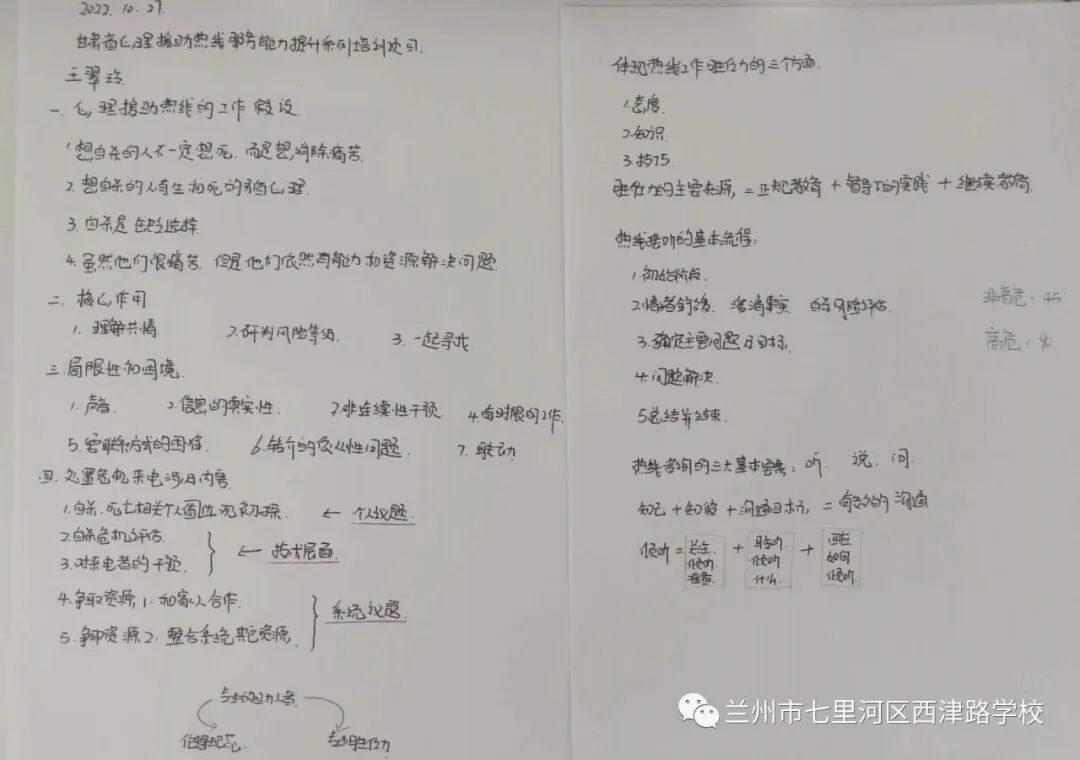 2022.10.27.
甘肃省心理援助热线服务能力提升系列培训项目.
王翠玲.
一、心理援助热线的工作假设.
1.想自杀的人不一定想死.而是想消除痛苦.
2.想自杀的人有生和死的矛盾心理.
3.自杀是在选择.
4.虽然他们很痛苦.但是他们依然有能力和资源解决问题.
二、核心作用.
1.理解共情 2.研判风险等级. 3.一起寻找.
三.局限性和困境.
1.声音. 2.信息的真实性. 3.非连续性干预. 4.有时限的工作.
5.要联系方式的困难. 6.转介的依从性问题. 7.联动.
四.处置危机来电涉及内容.
1.自杀.死亡相关个人 初探. ← 个人议题.
2.自杀危机评估.
3.对来电者的干预. ← 技术层面.
4.争取资源,1.和家人合作.
5.争取资源2:整合系统其它资源. 系统议题.
专业的助人者.
伦理规范. 专业胜任力
体现热线工作胜任力的三个方面.
1.态度.
2.知识.
3.技巧.
胜任力的主要来源,=正规教育+督导下的实践+继续教育.
热线接听的基本流程:
1.初始阶段.
2.情绪舒缓. 澄清事实. 自杀风险评估. 非高危.45
3.确定主要问题及目标. 高危:90
4.问题解决.
5.总结并结束.
热线咨询的三大基本要素:听. 说. 问.
知己+知彼+沟通目标,=有效的沟通
倾听= + +
倾听 倾听 如何
准备. 什么. 倾听.
兰州市七里河区西津路学校